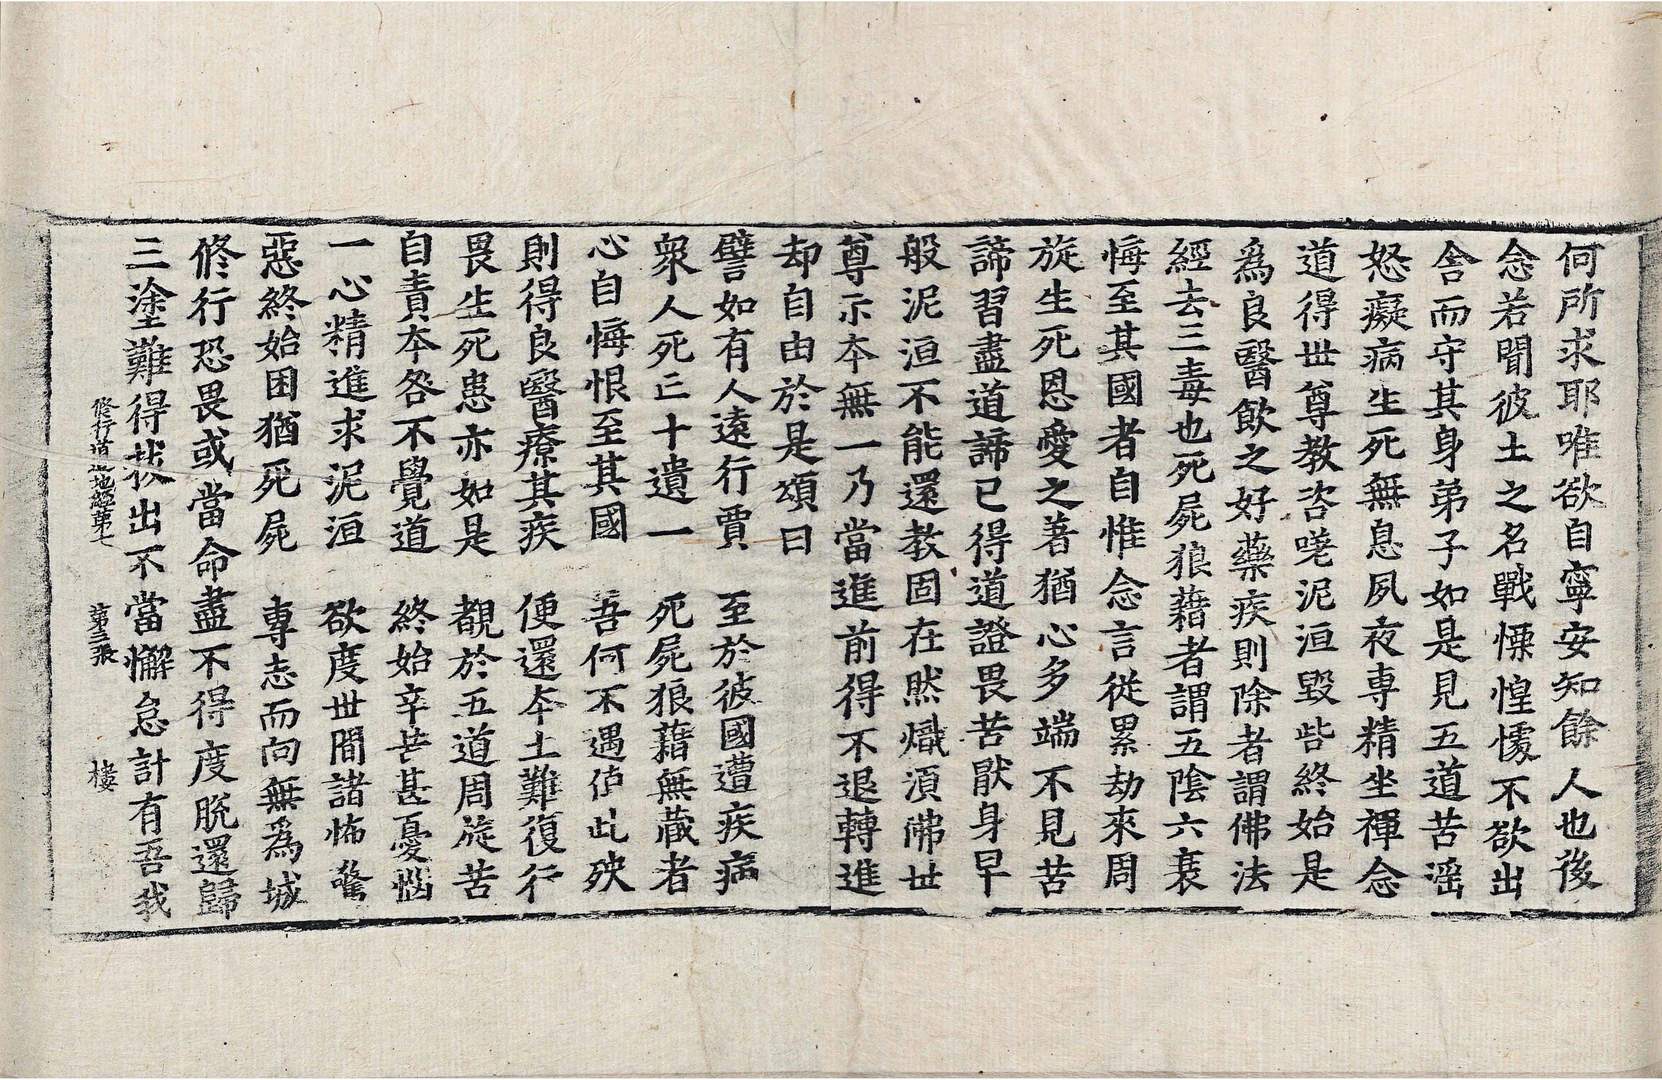 何所求耶唯欲自寧安知餘人也後
念若聞彼土之名戰慄惶懅不欲出
舍而守其身弟子如是見五道苦婬
怒癡病生死無息夙夜專精坐禪念
道得世尊教咨嗟泥洹毀呰終始是
爲良醫飲之好藥疾則除者謂佛法
經去三毒也死屍狼藉者謂五陰六衰
悔至其國者自惟念言從累劫來周
旋生死恩愛之著猶心多端不見苦
諦習盡道諦已得道證畏苦厭身早
般泥洹不能還教固在然熾湏佛世
尊示本無一乃當進前得不退轉進
却自由於是頌曰
譬如有人遠行賈　至於彼國遭疾病
衆人死亡十遺一　死屍狼藉無藏者
心自悔恨至其國　吾何不遇值此殃
則得良醫療其疾　便還本土難復行
畏生死患亦如是　觀於五道周旋苦
自責本咎不覺道　終始辛苦甚憂惱
一心精進求泥洹　欲度世間諸怖驚
惡終始困猶死屍　專志而向無爲城
修行恐畏或當命盡不得度脫還歸
三塗難得拔出不當懈怠計有吾我
修行道地經第七　第三張　樓